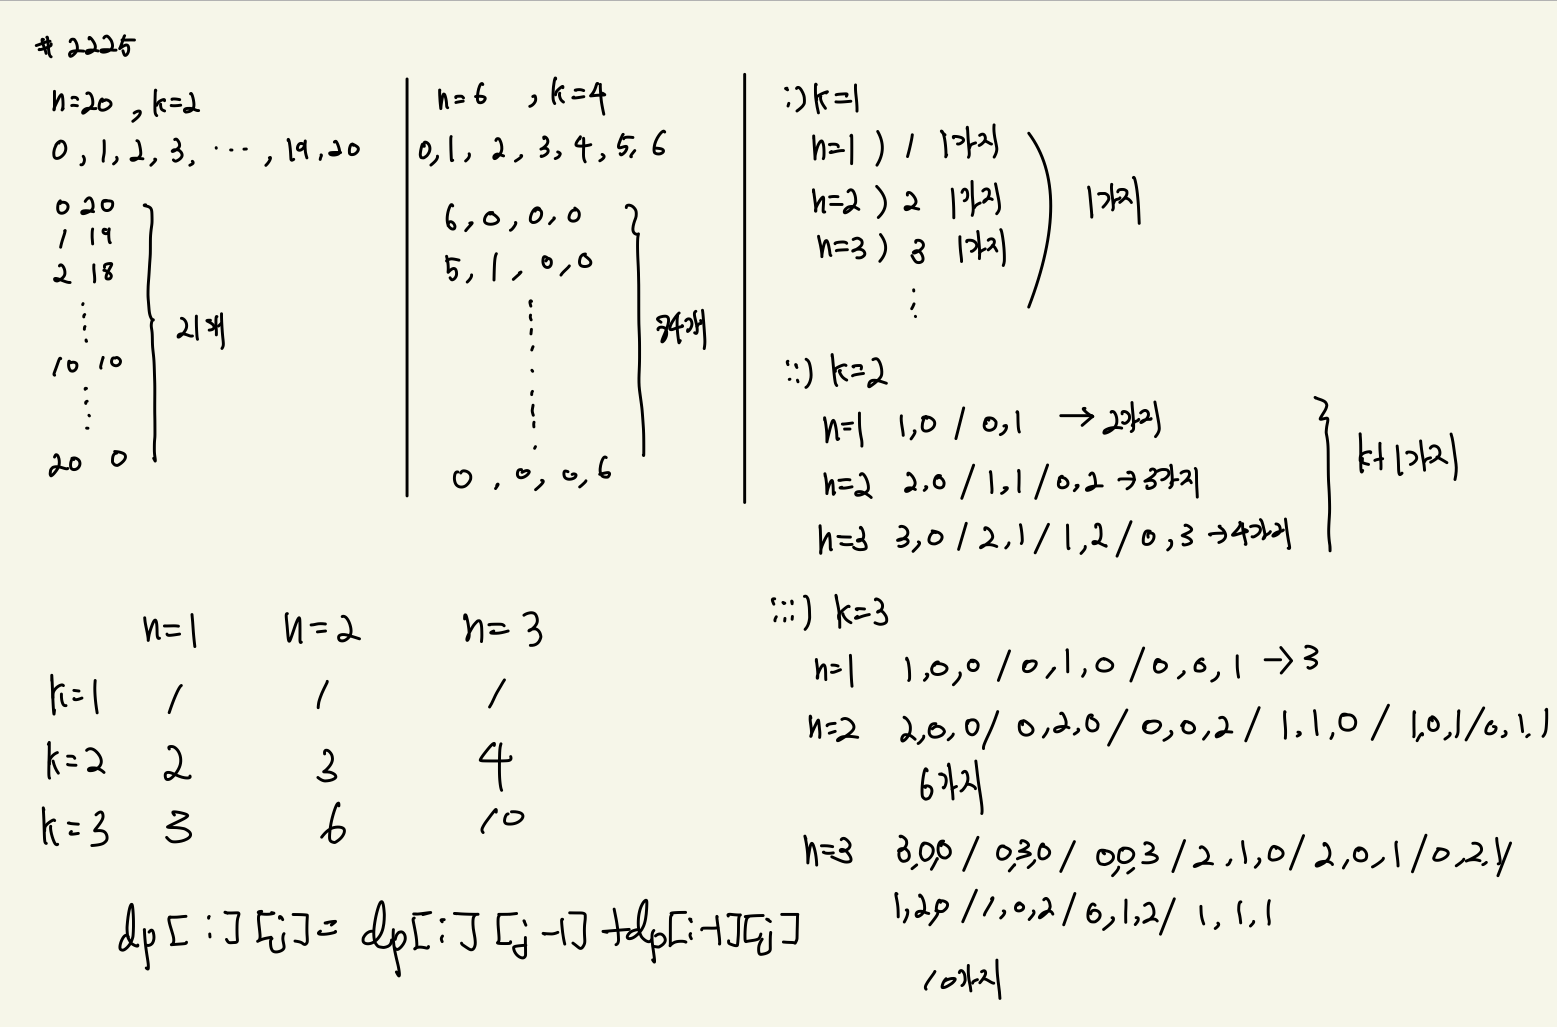 # 2225
n=20 , k=2
0 , 1, 2, 3, ··· , 19, 20
0 20
1 19
2 18
⋮
10 10
⋮
20 0
21개
n=6 , k=4
0, 1, 2, 3, 4, 5, 6
6, 0, 0, 0
5, 1, 0, 0
⋮
0, 0, 0, 6
i) k=1
n=1 ) 1 1가지
n=2 ) 2 1가지
n=3 ) 3 1가지
⋮
1가지
ii) k=2
n=1 1,0 / 0,1 → 2가지
n=2 2,0 / 1,1 / 0,2 → 3가지
n=3 3,0 / 2,1 / 1,2 / 0,3 → 4가지
k+1가지
iii) k=3
n=1 1,0,0 / 0,1,0 / 0,0,1 → 3
n=2 2,0,0 / 0,2,0 / 0,0,2 / 1,1,0 / 1,0,1 / 0,1,1
6가지
n=3 3,0,0 / 0,3,0 / 0,0,3 / 2,1,0 / 2,0,1 / 0,2,1/
1,2,0 / 1,0,2 / 0,1,2 / 1,1,1
10가지
n=1 n=2 n=3
k=1 1 1 1
k=2 2 3 4
k=3 3 6 10
dp[i][j] = dp[i][j-1] + dp[i-1][j]